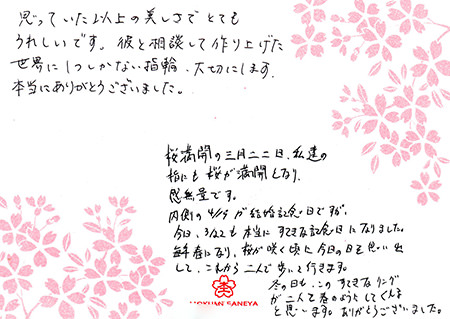 思っていた以上の美しさでとても
うれしいです。彼と相談して作り上げた
世界に1つしかない指輪、大切にします。
本当にありがとうございました。
桜満開の三月二二日、私達の
指にも桜が満開となり、
感無量です。
内側の4/9が結婚記念日ですが、
今日、3/22も本当にすてきな記念日になりました。
毎年春になり、桜が咲く頃に今日の日を思い出
して、これから二人で歩いて行きます。
冬の日も、このすてきなリング
が二人を春のようにしてくれる
と思います。ありがとうございました。
MOKUHAN SANEYA